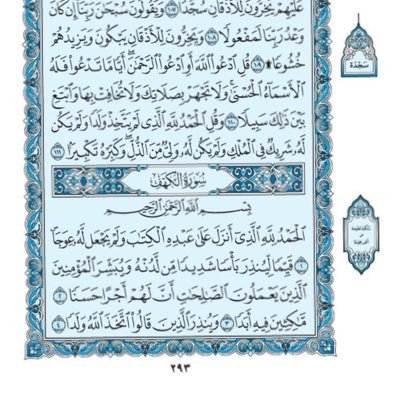 عَلَيْهِمْ يَخِرُّونَ لِلْأَذْقَانِ سُجَّدًا ۩ ١٠٧ وَيَقُولُونَ سُبْحَٰنَ رَبِّنَآ إِن كَانَ
وَعْدُ رَبِّنَا لَمَفْعُولًا ١٠٨ وَيَخِرُّونَ لِلْأَذْقَانِ يَبْكُونَ وَيَزِيدُهُمْ
خُشُوعًا ۩ ١٠٩ قُلِ ٱدْعُوا۟ ٱللَّهَ أَوِ ٱدْعُوا۟ ٱلرَّحْمَٰنَ ۖ أَيًّا مَّا تَدْعُوا۟ فَلَهُ
ٱلْأَسْمَآءُ ٱلْحُسْنَىٰ ۚ وَلَا تَجْهَرْ بِصَلَاتِكَ وَلَا تُخَافِتْ بِهَا وَٱبْتَغِ
بَيْنَ ذَٰلِكَ سَبِيلًا ١١٠ وَقُلِ ٱلْحَمْدُ لِلَّهِ ٱلَّذِى لَمْ يَتَّخِذْ وَلَدًا وَلَمْ يَكُن
لَّهُۥ شَرِيكٌ فِى ٱلْمُلْكِ وَلَمْ يَكُن لَّهُۥ وَلِىٌّ مِّنَ ٱلذُّلِّ ۖ وَكَبِّرْهُ تَكْبِيرًۢا ١١١
سَجْدَة
سُورَةُ الكَهْفِ
بِسْمِ ٱللَّهِ ٱلرَّحْمَٰنِ ٱلرَّحِيمِ
ٱلْحَمْدُ لِلَّهِ ٱلَّذِىٓ أَنزَلَ عَلَىٰ عَبْدِهِ ٱلْكِتَٰبَ وَلَمْ يَجْعَل لَّهُۥ عِوَجَا
١ قَيِّمًا لِّيُنذِرَ بَأْسًا شَدِيدًا مِّن لَّدُنْهُ وَيُبَشِّرَ ٱلْمُؤْمِنِينَ
ٱلَّذِينَ يَعْمَلُونَ ٱلصَّٰلِحَٰتِ أَنَّ لَهُمْ أَجْرًا حَسَنًا ٢
مَّٰكِثِينَ فِيهِ أَبَدًا ٣ وَيُنذِرَ ٱلَّذِينَ قَالُوا۟ ٱتَّخَذَ ٱللَّهُ وَلَدًا ٤
٢٩٣